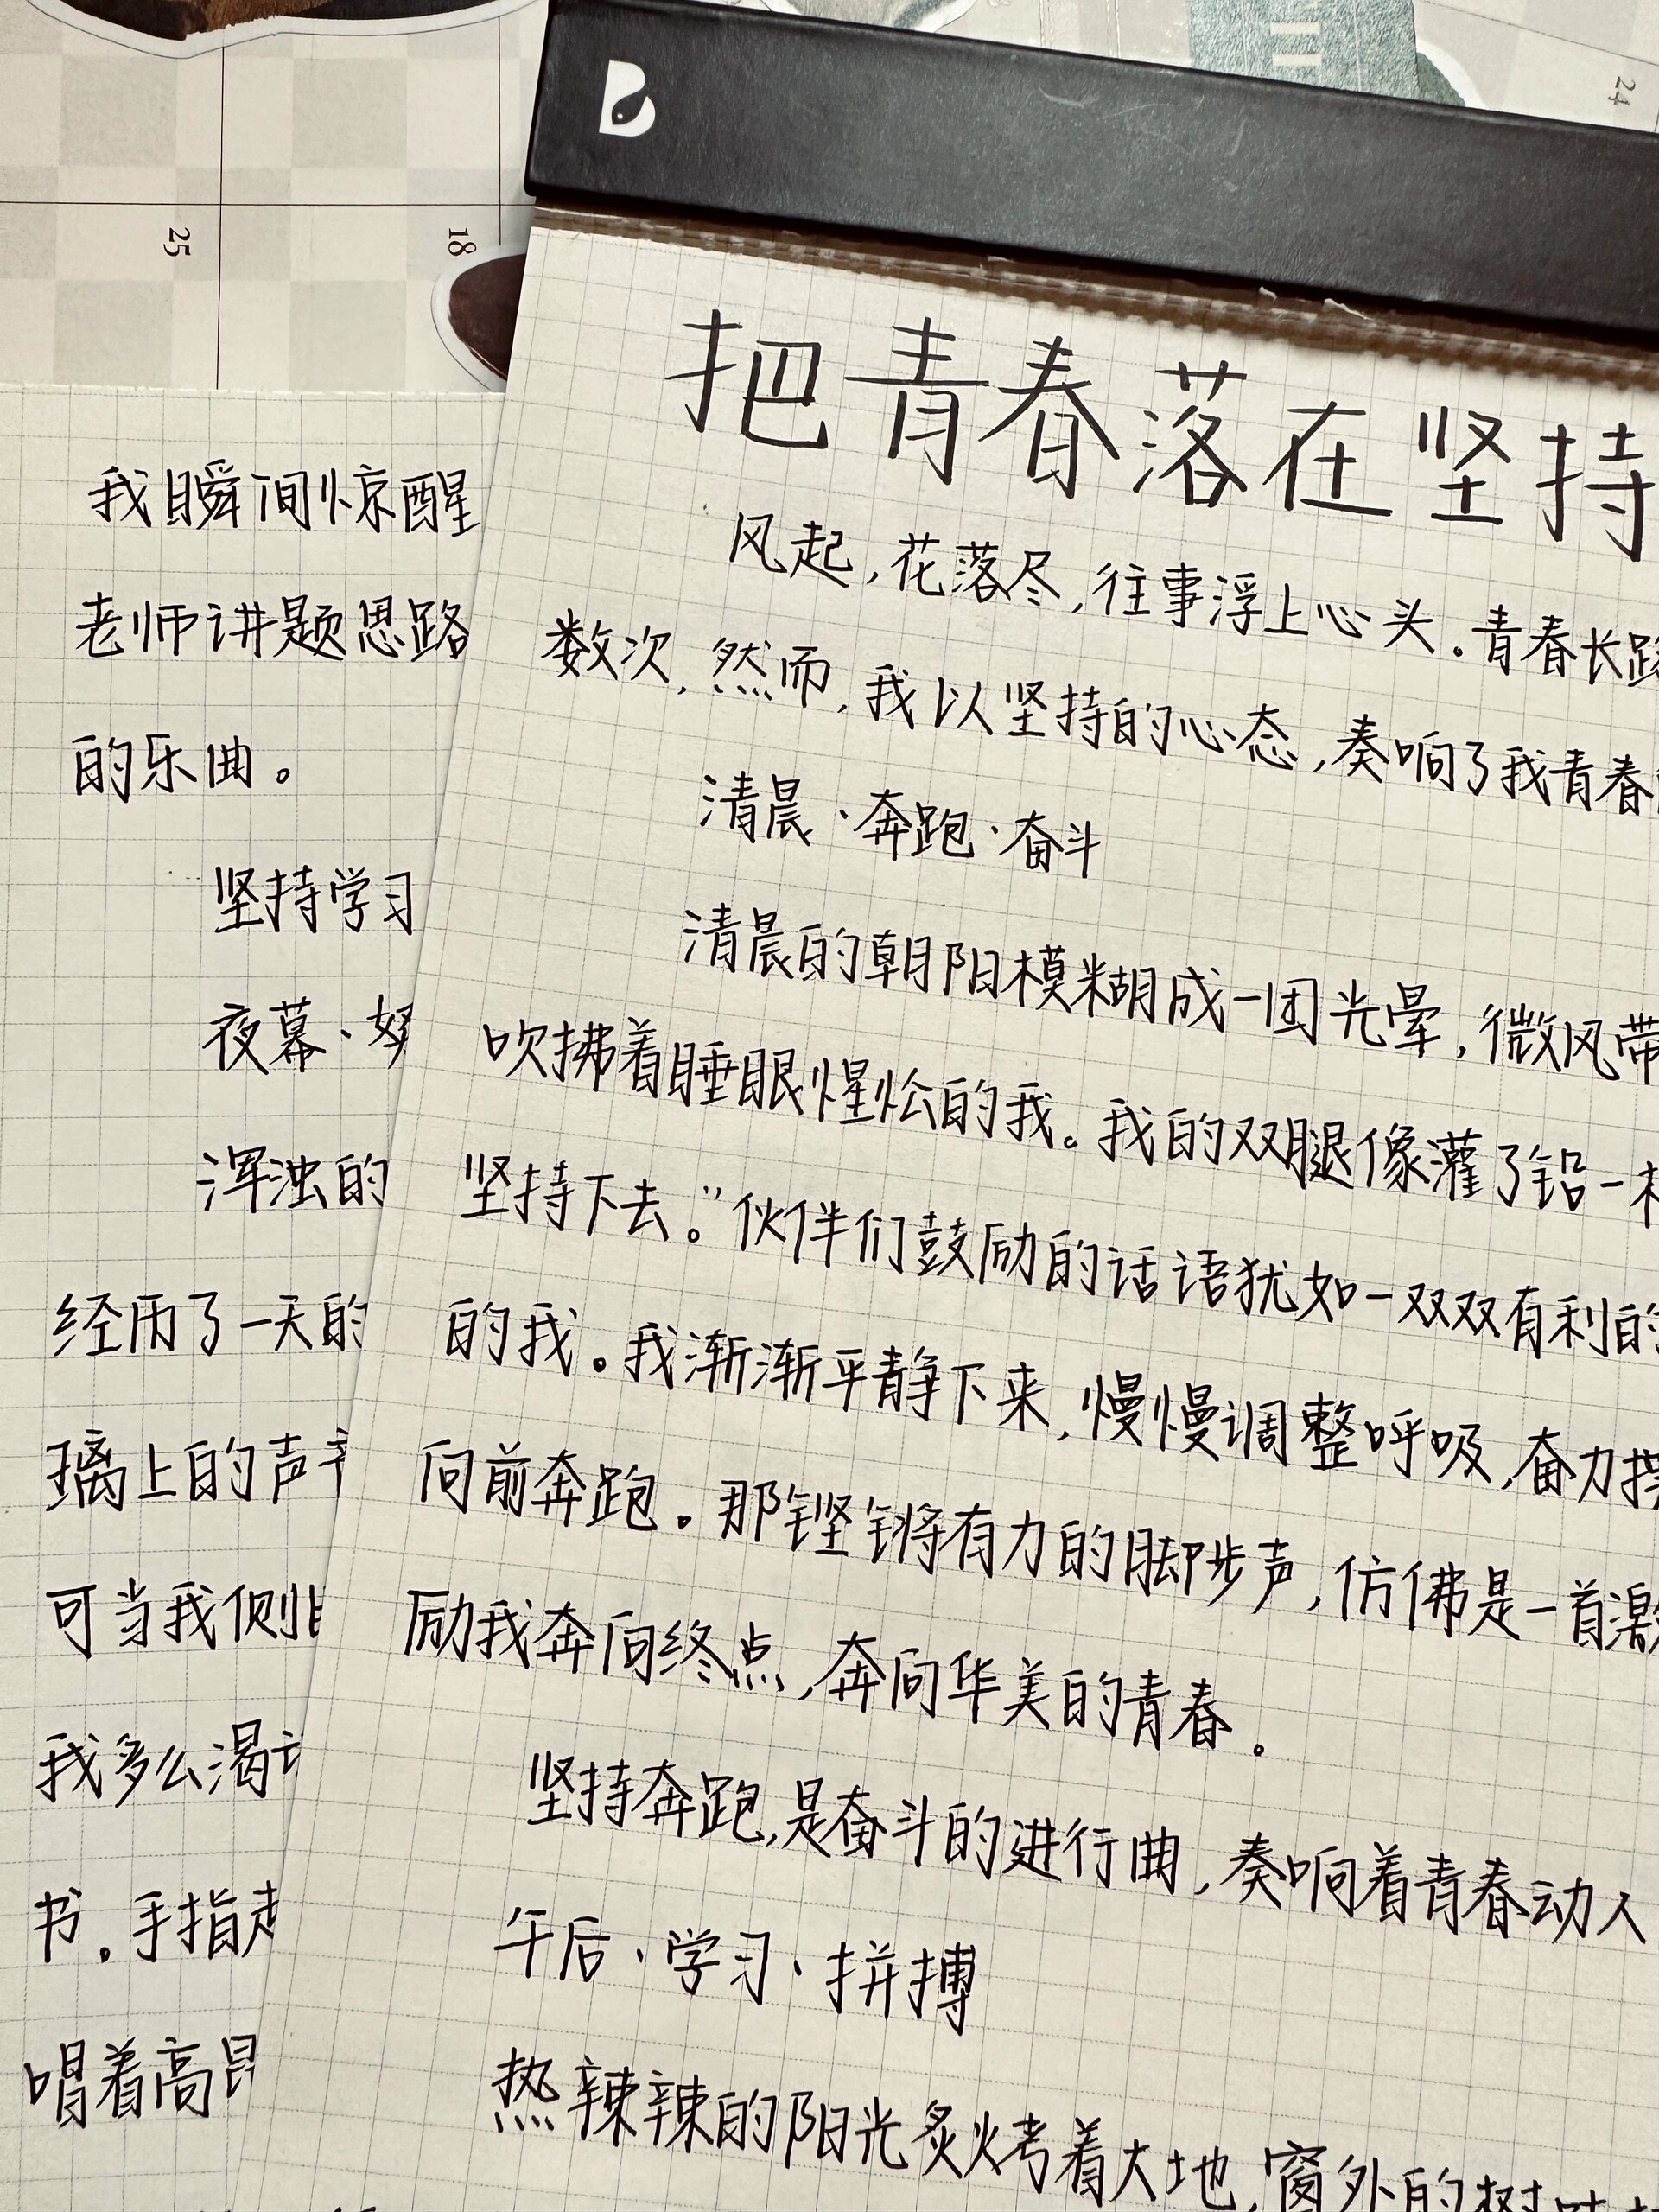 24
25
18
把青春落在坚持
风起,花落尽,往事浮上心头.青春长路
数次,然而,我以坚持的心态,奏响了我青春
清晨·奔跑·奋斗
清晨的朝阳模糊成一团光晕,微风带
吹拂着睡眼惺忪的我。我的双腿像灌了铅一
坚持下去。”伙伴们鼓励的话语犹如一双双有利的
的我。我渐渐平静下来,慢慢调整呼吸,奋力
向前奔跑。那铿锵有力的脚步声,仿佛是一首激
励我奔向终点,奔向华美的青春。
坚持奔跑,是奋斗的进行曲,奏响着青春动人
午后·学习·拼搏
热辣辣的阳光炙烤着大地,窗外的树
我瞬间惊醒
老师讲题思路
的乐曲。
坚持学习
夜幕·努
浑浊的
经历了一天的
璃上的声
可当我侧
我多么渴
书。手指
唱着高昂